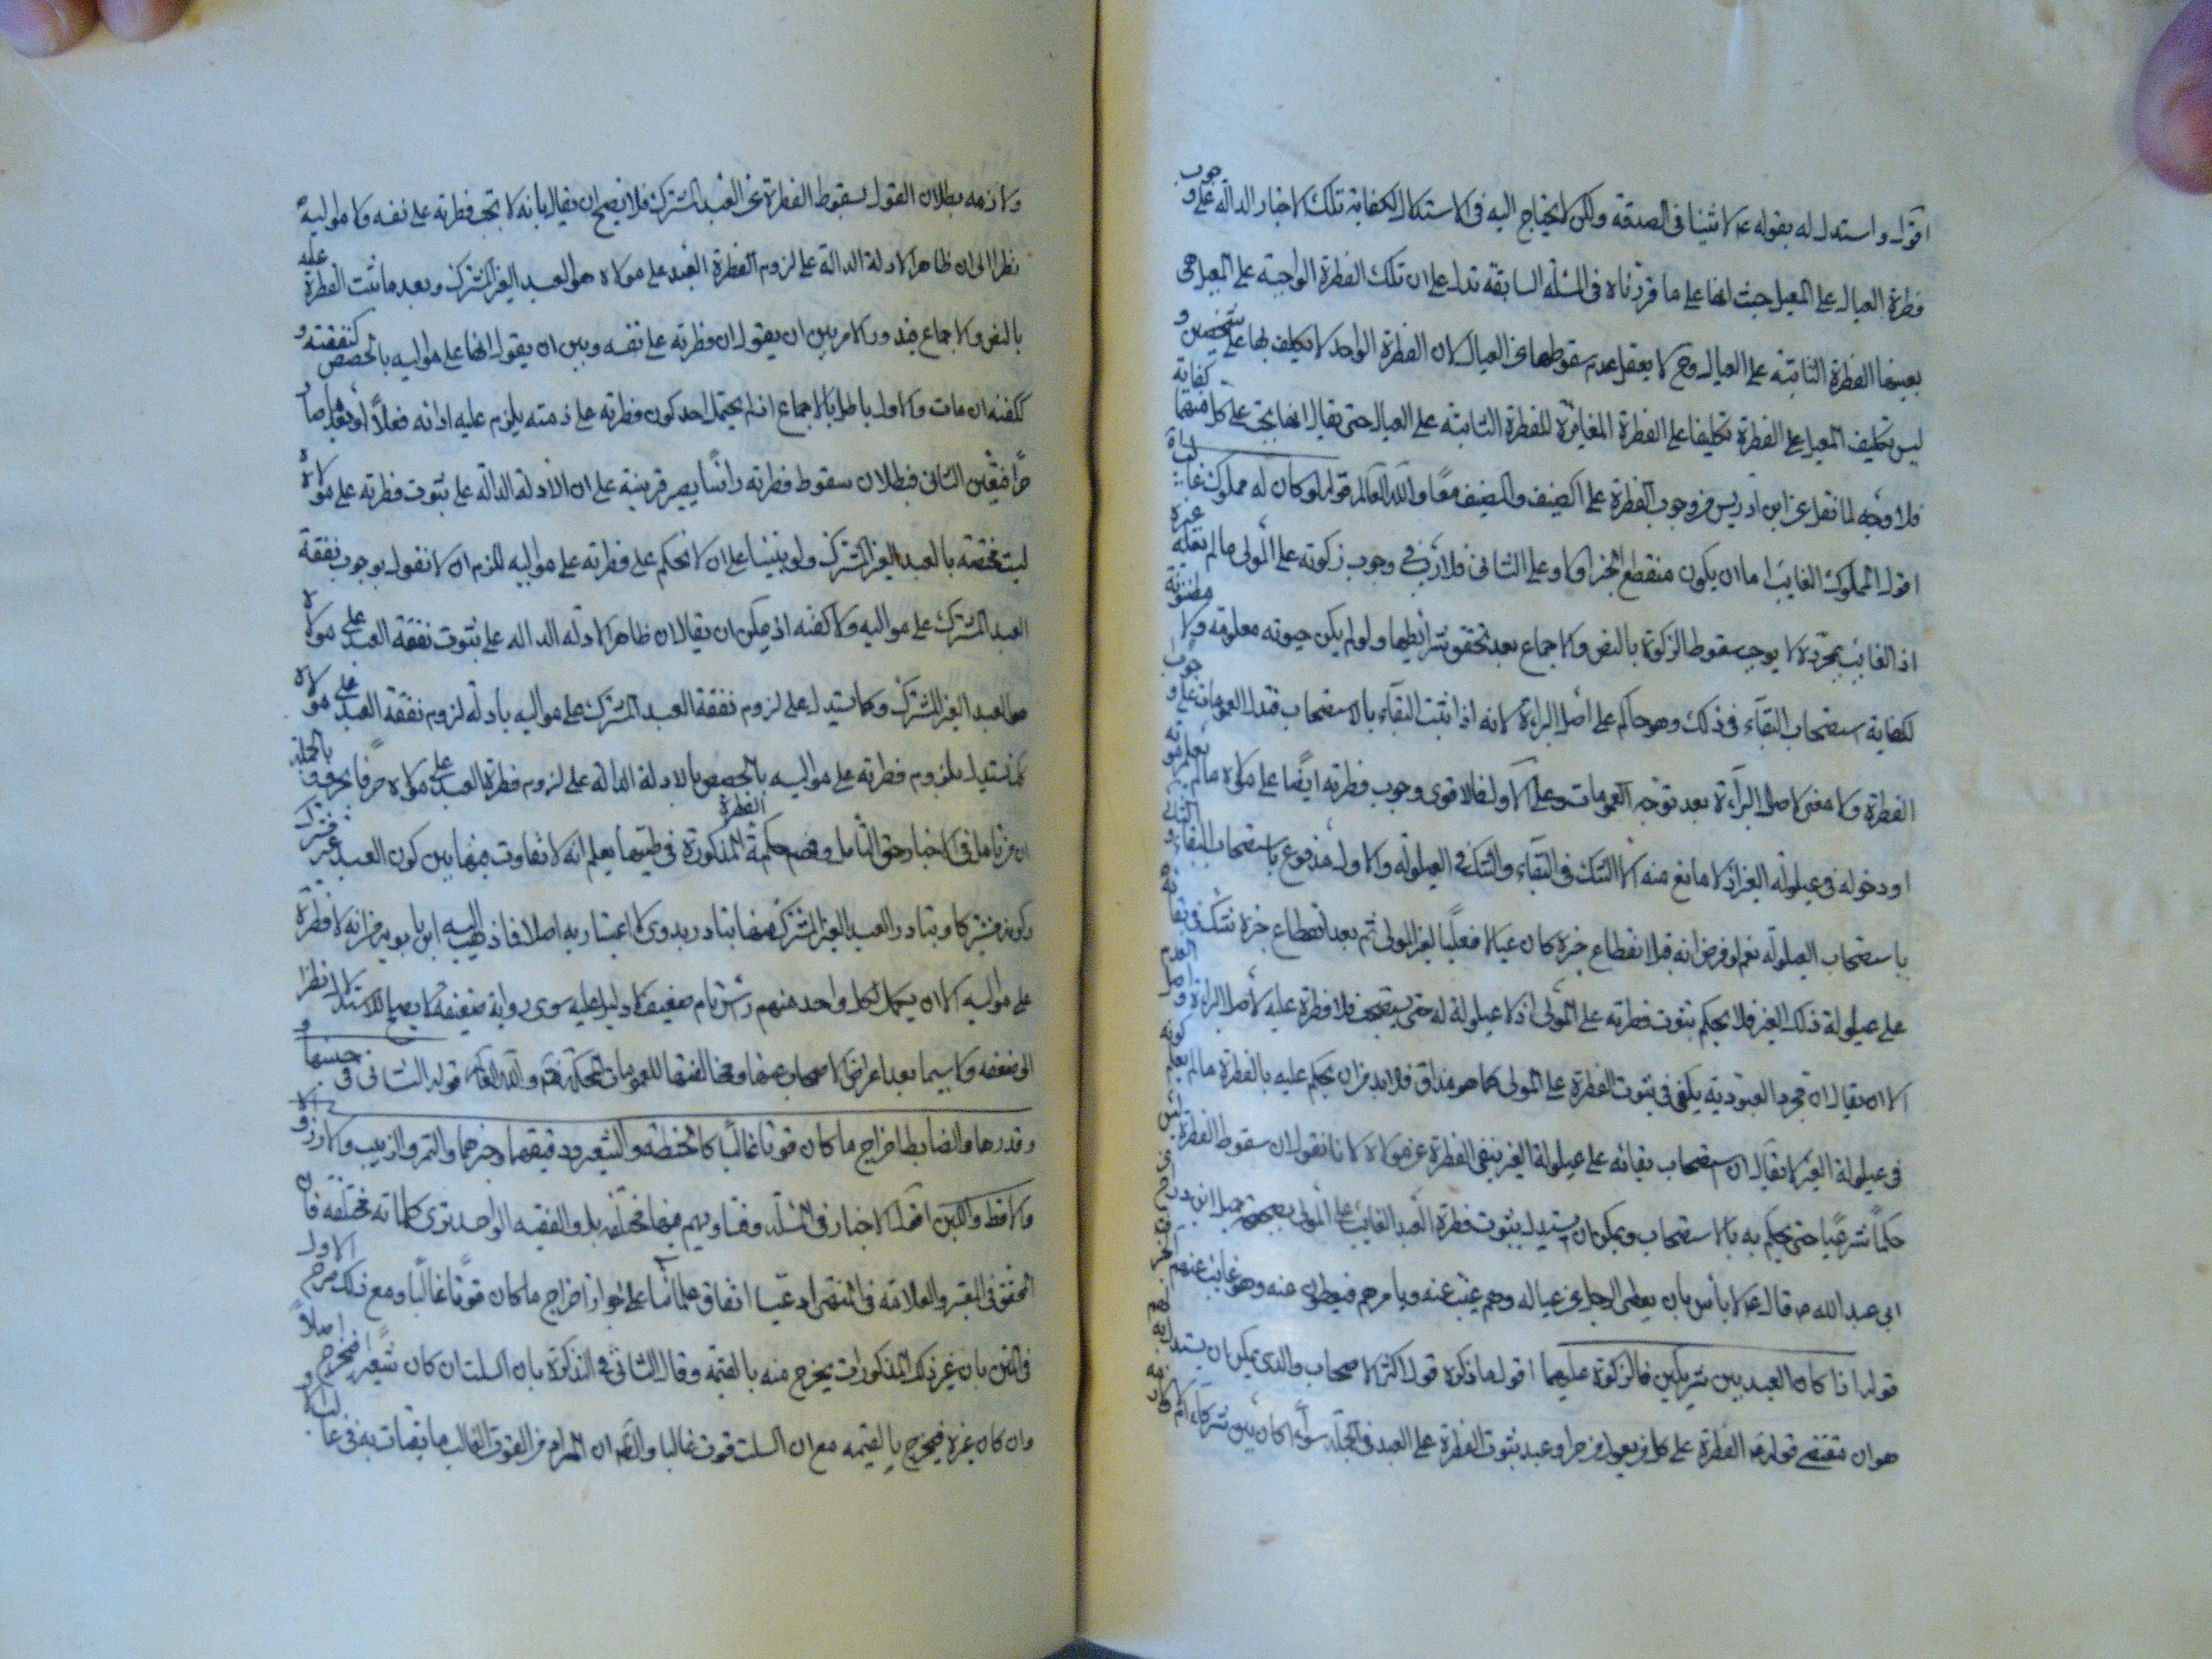 اقول واستدل له بقوله عم لا ثنيا فى الصدقة ولكن لا يحتاج اليه فى الاستدلال لكفاية تلك الاخبار الدالة على وجوب
فطرة العيال على المعيل حيث انها على ما قررناه فى المسئلة السابقة تدل على ان تلك الفطرة الواجبة على المعيل هى
بعينها الفطرة الثابتة على العيال وح لا يعقل عدم سقوطها عن العيال لان الفطرة الواحد لا يكلف بها على شخصين و
ليس تكليف المعيل على الفطرة تكليفا على الفطرة المغايرة للفطرة الثابتة على العيال حتى يقال انها يجب على كل منهما كفاية
فلا وجه لما نقل عن ابن ادريس من وجوب الفطرة على الضيف والمضيف معا والله العالم قوله لو كان له مملوك غايب
اقول المملوك الغايب اما ان يكون منقطع الخبر او لا وعلى الثانى فلا ريب فى وجوب زكوته على المولى ما لم يعله غيره
اذ الغائب بمجرده لا يوجب سقوط الزكوة بالنص والاجماع بعد تحقق شرائطها ولو لم يكن حيوته معلومة ولا مظنونة
لكفاية استصحاب البقاء فى ذلك وهو حاكم على اصل البراءة لانه اذا ثبت البقاء بالاستصحاب فتدل العمومات على وجوب
الفطرة ولا معنى لاصل البراءة بعد توجه العمومات وعلى الاول فالاقوى وجوب فطرته ايضا على مولاه ما لم يعلم موته
او دخوله فى عيلولة الغير اذ لا مانع منه الا الشك فى البقاء والشك فى العيلولة والاول مدفوع باستصحاب البقاء والثانى
باستصحاب العيلولة نعم لو فرض انه قبل انقطاع خبره كان عيالا فعليا لغير المولى ثم بعد انقطاع خبره نشك فى بقائه
على عيلولة ذلك الغير فلا يحكم بثبوت فطرته على المولى اذ لا عيلولة له حتى يستصحب فلا فطرة عليه لاصل البراءة واصل العدم
الا ان يقال ان مجرد العبودية يكفى فى ثبوت الفطرة على المولى كما هو مذاق فلابد من ان يحكم عليه بالفطرة ما لم يعلم كونه
فى عيلولة الغير لا يقال ان استصحاب بقائه على عيلولة الغير ينفى الفطرة عن مولاه لانا نقول ان سقوط الفطرة ليس
حكما شرعيا حتى يحكم به بالاستصحاب ويمكن ان يستدل بثبوت فطرة العبد الغايب على المولى بصحيحة جميل ابن دراج عن
ابى عبد الله ع قال عم لا بأس بان يعطى الرجل عن عياله وهم غيب عنه ويأمرهم فيعطون عنه وهو غايب عنهم
قوله اذا كان العبد بين شريكين فالزكوة عليهما اقول ما ذكره قول اكثر الاصحاب والذى يمكن ان يستدل به
هو ان مقتضى قوله عم الفطرة على كل من يعول من حر او عبد ثبوت الفطرة على العبد فى الجملة سواء كان بين شركاء ام لا
ولازمه بطلان القول بسقوط الفطرة عن العبد المشترك فلا يصح ان يقال بانه لا تجب فطرته على نفسه ولا مواليه
نظرا الى ان ظاهر الادلة الدالة على لزوم الفطرة العبد على مولاه هو العبد الغير المشترك وبعد ما ثبت الفطرة عليه
بالنص والاجماع فيدور الامر بين ان يقول ان فطرته على نفسه وبين ان يقول انها على مواليه بالحصص كنفقته و
ككفنه ان مات والاول باطل بالاجماع اذ لم يحتمل احد كون فطرته على ذمته يلزم عليه ادائه فعلا او بعد ما صار
حرا فتعين الثانى فبطلان سقوط فطرته رأسا يصير قرينة على ان الادلة الدالة على ثبوت فطرته على مولاه
ليست مختصة بالعبد الغير المشترك ولو بنينا على ان لا نحكم على فطرته على مواليه للزم ان لا نقول بوجوب نفقة
العبد المشترك على مواليه ولا كفنه اذ يمكن ان يقال ان ظاهر الادلة الدالة على ثبوت نفقة العبد على مولاه
هو العبد الغير المشترك وكما تستدل على لزوم نفقة العبد المشترك على مواليه بادلة لزوم نفقة العبد على مولاه
كذا نستدل بلزوم فطرته على مواليه بالحصص بالادلة الدالة على لزوم فطرة العبد على مولاه حرفا بحرف وبالجملة
ان من تامل فى الاخبار حق التامل وفهم حكمة الفطرة المذكورة فى طيها يعلم انه لا تفاوت فيها بين كون العبد غير مشترك
وكونه مشتركا وتبادر العبد الغير المشترك منها تبادر بدوى لا اعتبار به اصلا فما ذهب اليه ابن بابويه من انه لا فطرة
على مواليه الا ان يكمل لكل واحد منهم رأس تام ضعيف لا دليل عليه سوى رواية ضعيفة لا يصح للاستدلال نظرا
الى ضعفه ولا سيما بعد اعراض الاصحاب عنها ومخالفتها للعمومات المحكمة فتم والله العالم قوله الثانى فى جنسها
وقدرها والضابط اخراج ما كان قوتا غالبا كالحنطة والشعير ودقيقهما وخبزهما والتمر والزبيب والارز
والاقط واللبن اقول الاخبار فى المسئلة وفتاويهم فيها مختلفة بل والفقيه الواحد ترى كلماته مختلفة فان
المحقق فى المعتبر والعلامة فى المنتهى ادعيا اتفاق علمائنا على جواز اخراج ما كان قوتا غالبا ومع ذلك صرح الاول
فى المتن بان غير ذلك المذكورات يخرج منه بالقيمة وقال الثانى فى التذكرة بان السلت ان كان شعيرا فيخرج اصلا
وان كان غيره فيخرج بالقيمة مع ان السلت قوت غالبا والظ ان المرام من القوت الغالب ما يقتات به فى غالب